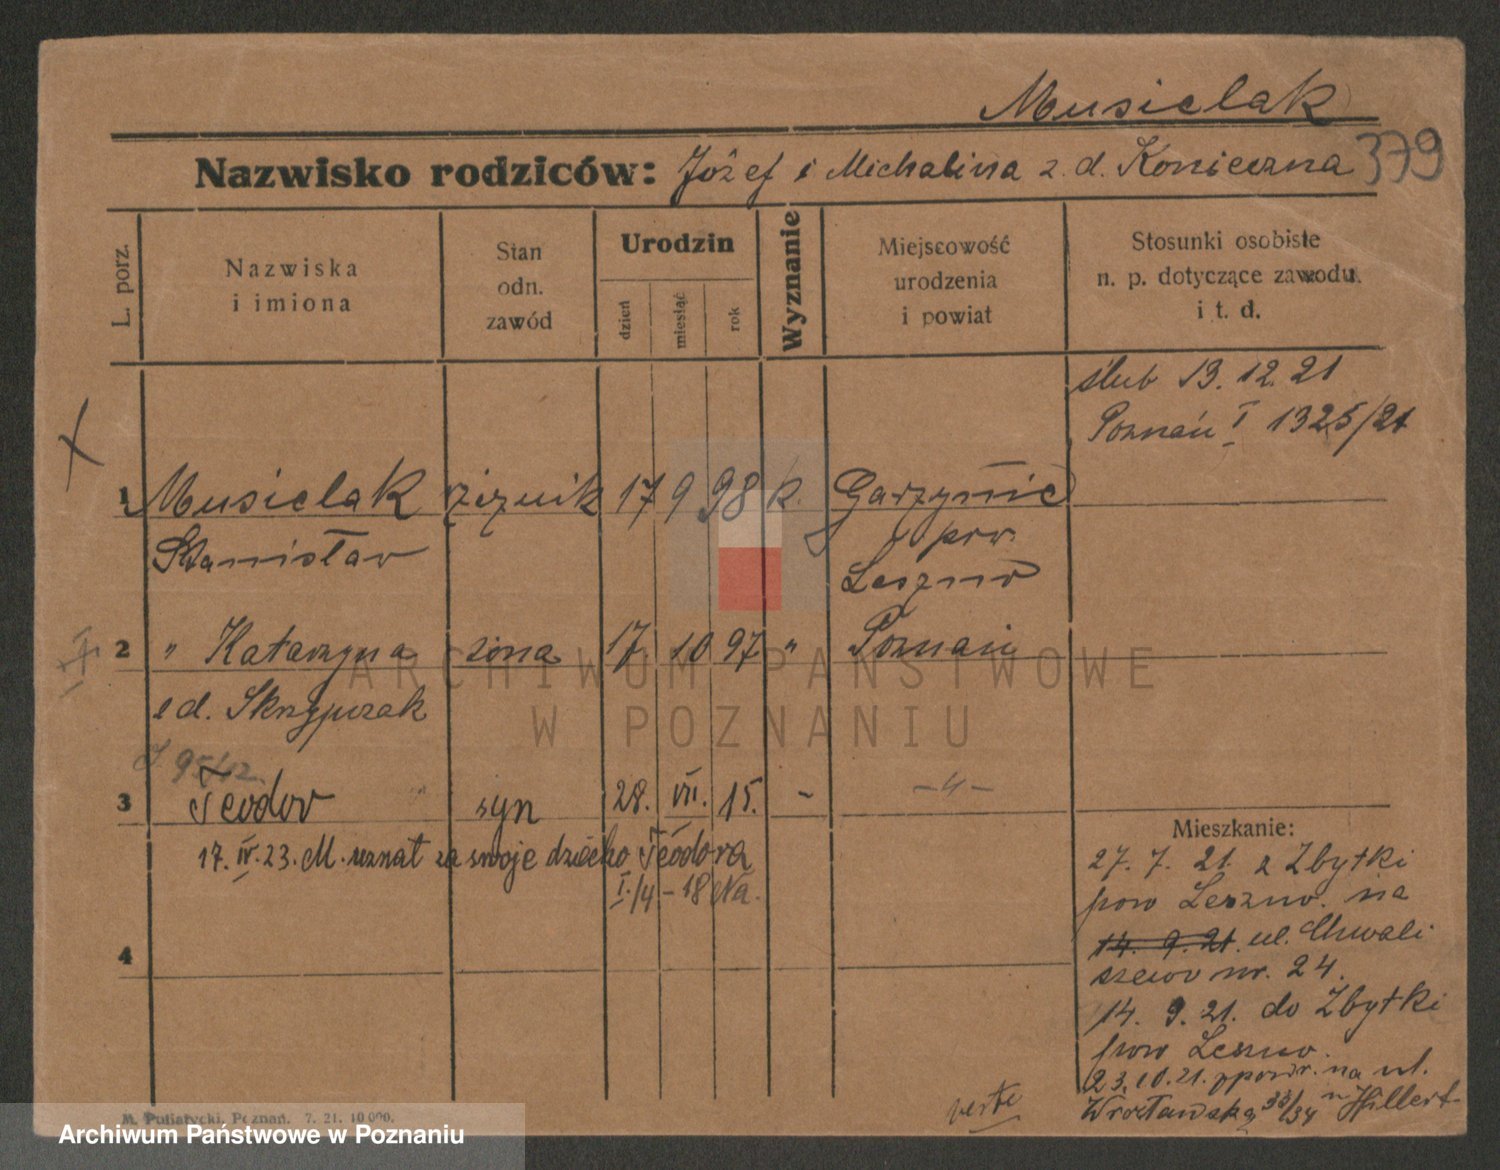 Musielak
Nazwisko rodziców: Józef i Michalina z. d. Konieczna 379
L. porz.
Nazwiska
i imiona
Stan
odn.
zawód
Urodzin
dzień
miesiąc
rok
Wyznanie
Miejscowość
urodzenia
i powiat
Stosunki osobiste
n. p. dotyczące zawodu
i t. d.
ślub 13. 12. 21
Poznań I 1325/21
1 Musielak rzeźnik 17 9 98 k.
Stanisław pow.
Leszno
2 " Katarzyna żona 17 10 97 " Poznań
z d. Skrzypczak
3 Teodor syn 28. VII. 15. - -"-
17. IV. 23. M. uznał za swoje dziecko Teodora
I./4 - 18
4
Mieszkanie:
27. 7. 21. z Zbytki
pow Leszno. na
14. 9. 21. ul. Chwali
szewo nr. 24.
14. 9. 21. do Zbytki
pow Leszno.
23.10.21. na ul.
Wrocławską 33/34 Hillert
M. Putiatycki, Poznań. 7. 21. 10 000.
ARCHIWUM PAŃSTWOWE
W POZNANIU
Archiwum Państwowe w Poznaniu